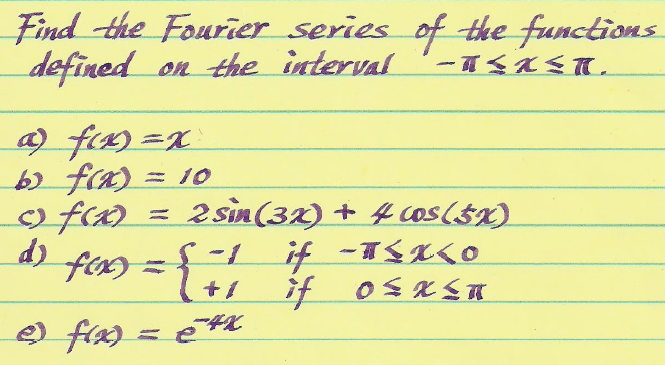 Find the Fourier series of the functions
defined on the interval -π ≤ x ≤ π.
a) f(x) = x
b) f(x) = 10
c) f(x) = 2 sin(3x) + 4 cos(5x)
d) f(x) = { -1 if -π ≤ x < 0
+1 if 0 ≤ x ≤ π
e) f(x) = e^{-4x}